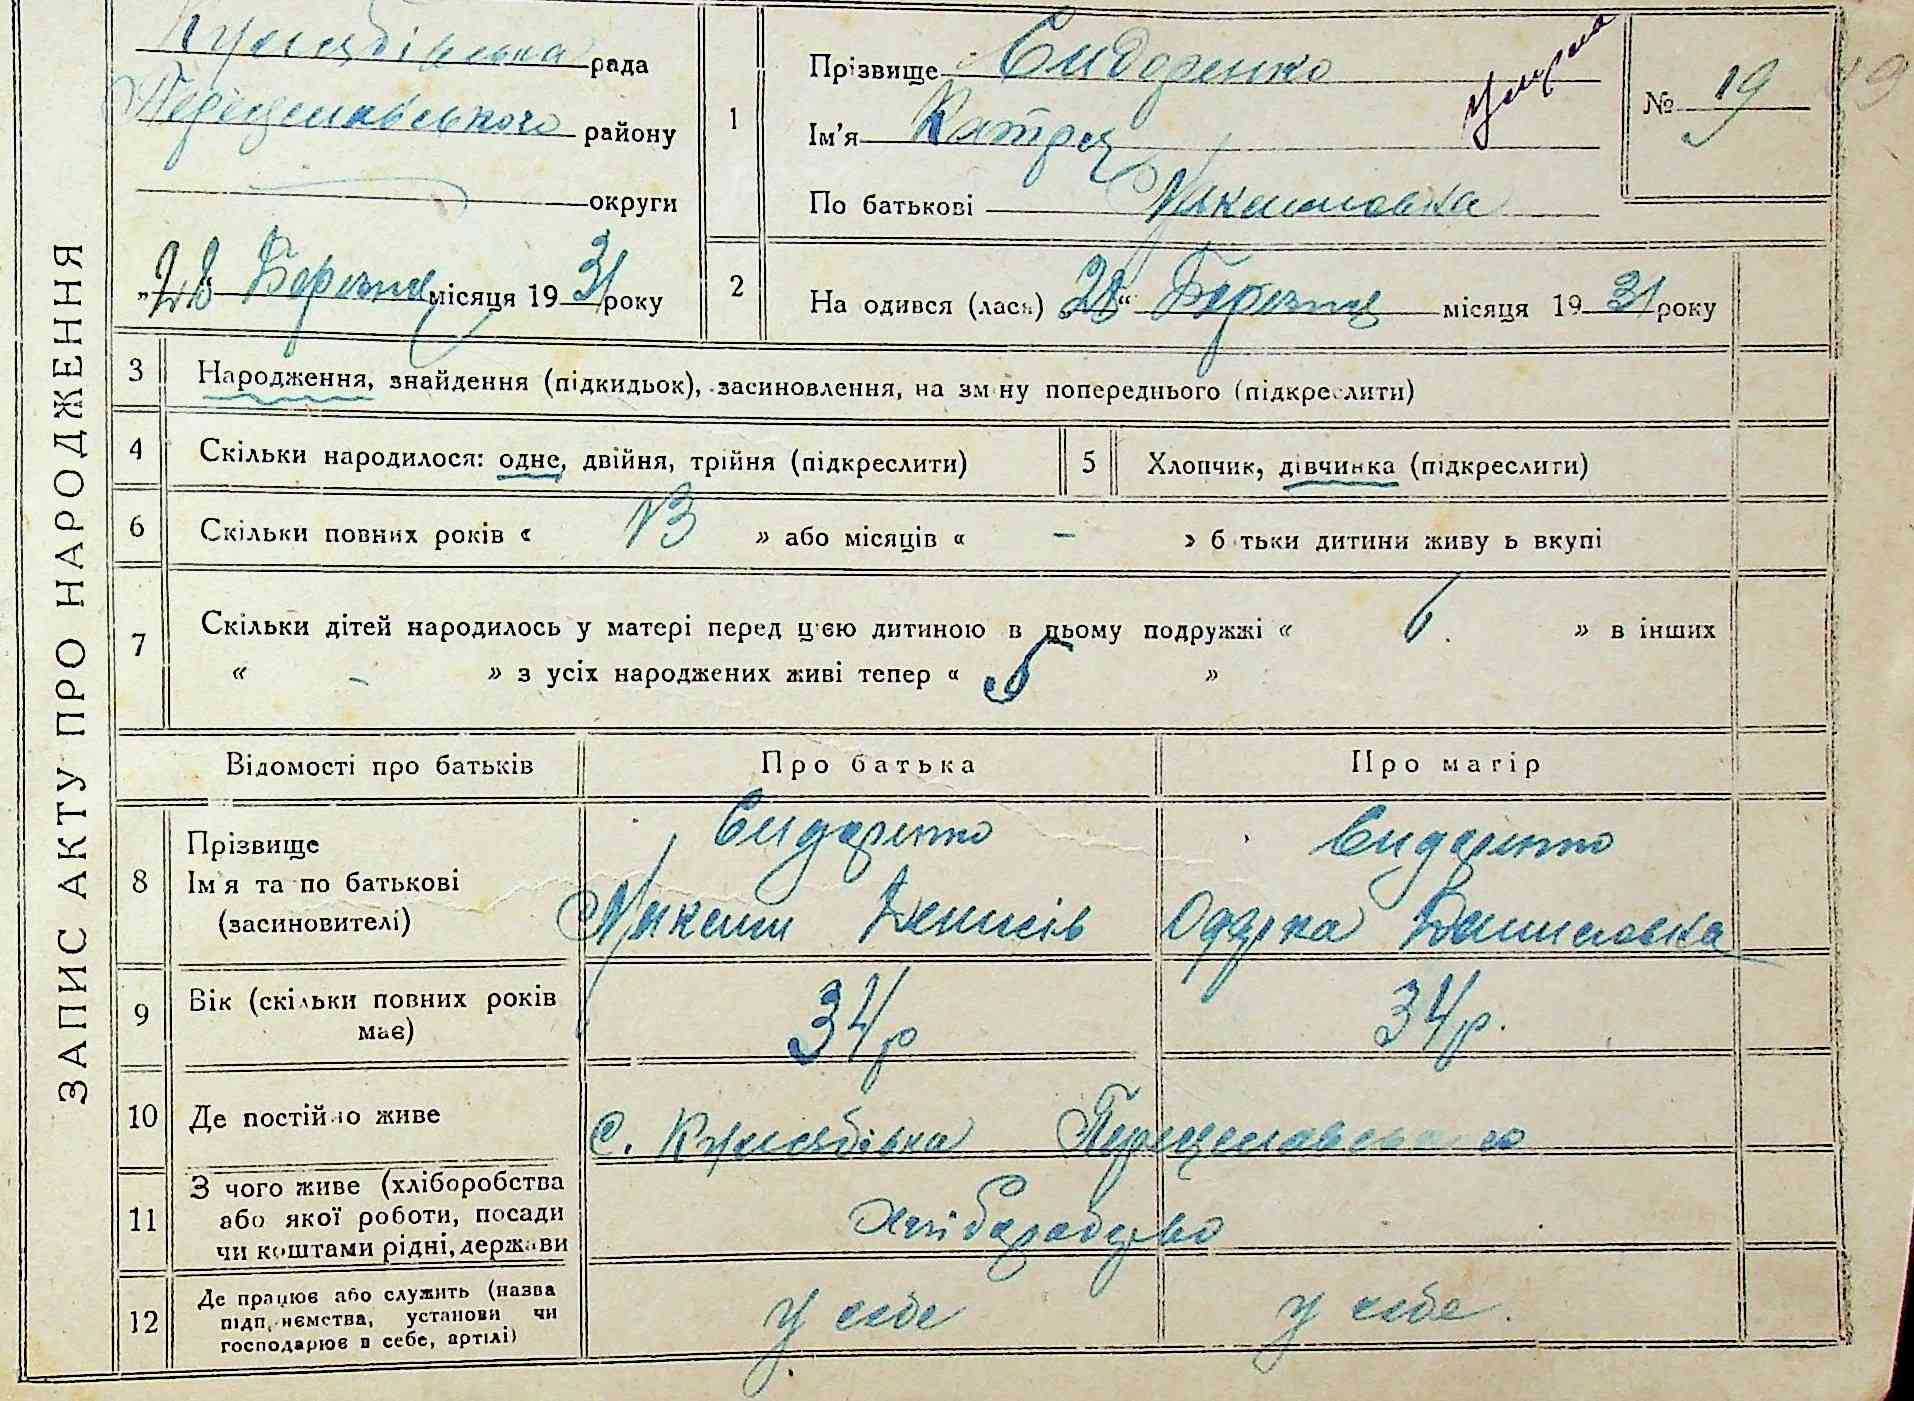 ЗАПИС АКТУ ПРО НАРОДЖЕННЯ
рада
Переяславського району
округи
„28 Березня місяця 1931 року
1
Прізвище Сидоренко
Ім'я Катря
По батькові Максимовна
умерла
№ 19
19
2
На одився (лася) 28“ Березня місяця 1931 року
3 Народження, знайдення (підкидьок), засиновлення, на зм ну попереднього (підкреслити)
4 Скільки народилося: одне, двійня, трійня (підкреслити)
5 Хлопчик, дівчинка (підкреслити)
6 Скільки повних років « 13 » або місяців « - » б тьки дитини живу ь вкупі
7 Скільки дітей народилось у матері перед цією дитиною в цьому подружжі « 6. » в інших
« - » з усіх народжених живі тепер « 5 »
Відомості про батьків Про батька Про матір
8 Прізвище
Ім'я та по батькові
(засиновителі)
Сидоренко
Максим Денисів
Сидоренко
Одарка
9 Вік (скільки повних років має)
34 р
34 р.
10 Де постійно живе
с. Переяславського
11 З чого живе (хліборобства
або якої роботи, посади
чи коштами рідні, держави
Хліборобство
12 Де працює або служить (назва
підприємства, установи чи
господарює в себе, артілі)
У себе
У себе.